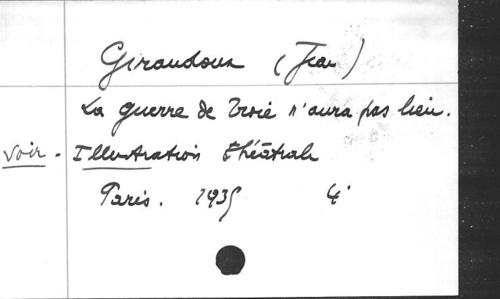 Giraudoux (Jean)
La guerre de Troie n'aura pas lieu.
Voir - Illustration théâtrale
Paris. 1935 4°